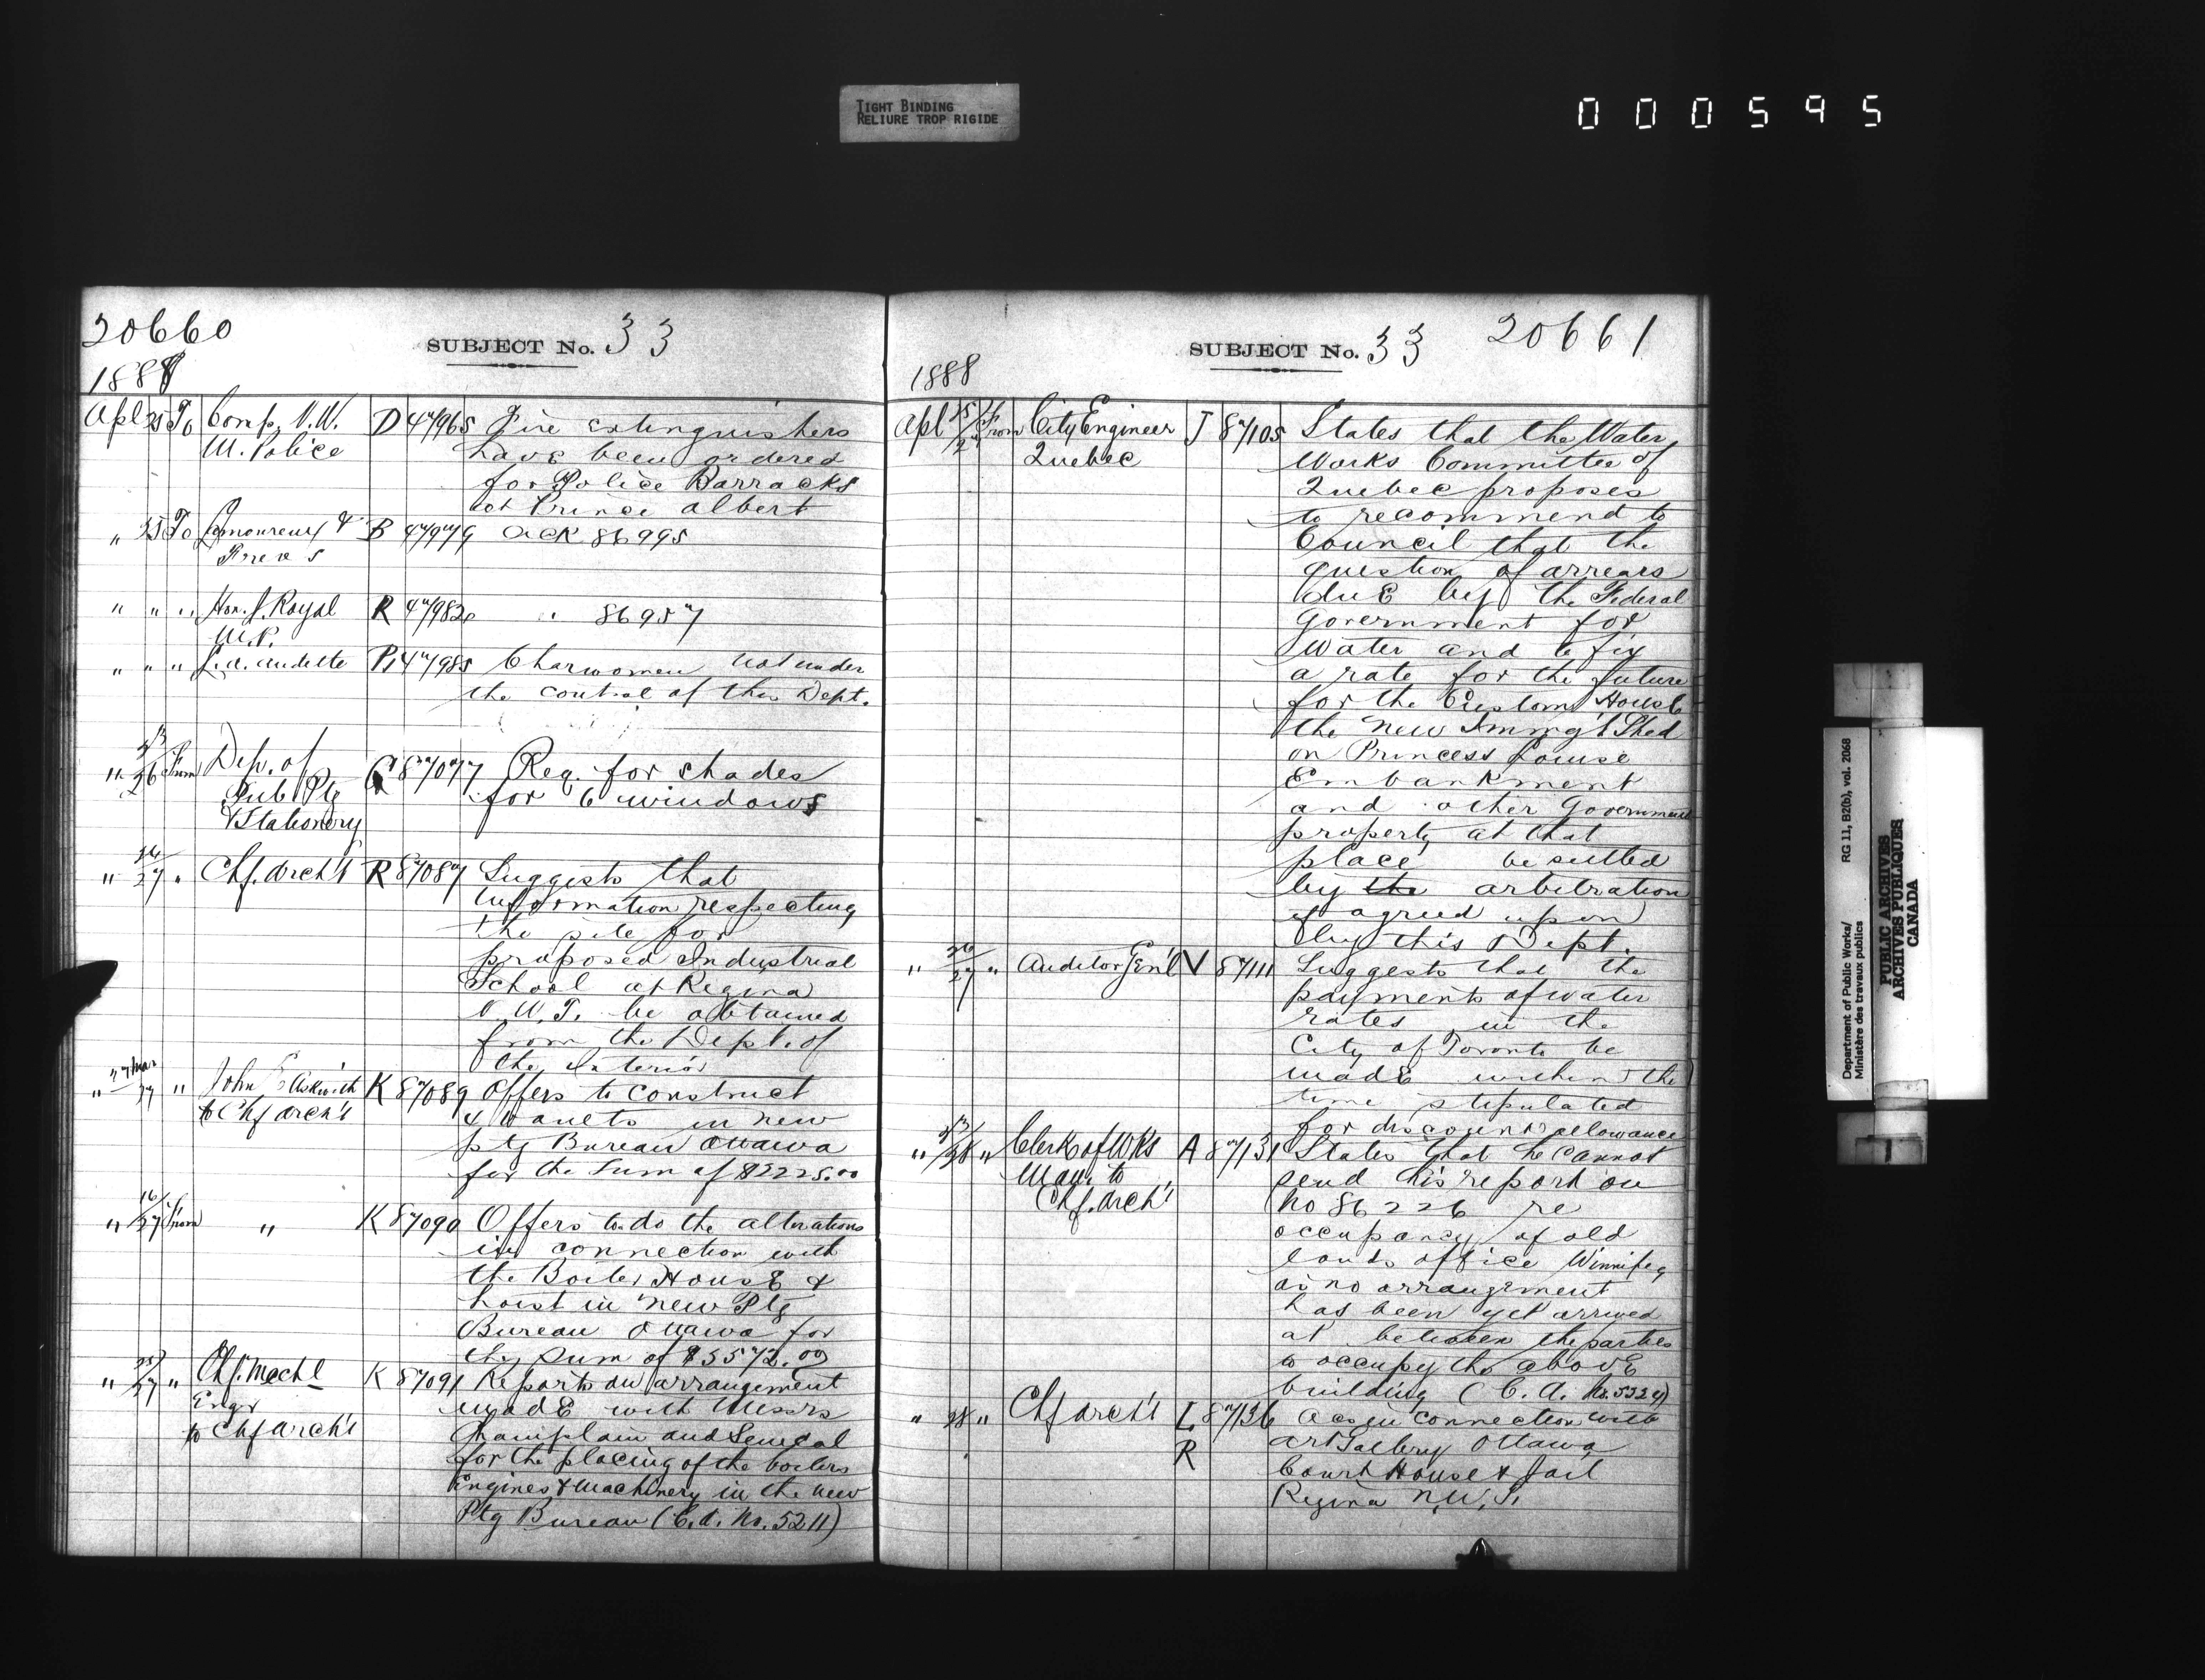 TIGHT BINDING
RELIURE TROP RIGIDE
000595
20660
SUBJECT No. 33
1888
Apl 25 To Comp. N.W. D 47965 Fire extinguishers
M. Police have been ordered
for Police Barracks
at Prince albert
" 25 To & B 47979 ack 86995
" " " Hon. J. Royal R 47982 " 86957
M.P.
" " " L.A. Audette 47985 Charwomen not under
the control of this Dept.
" 23/26 From Dep. of 87077 Req. for shades
Pub Ptg for 6 windows
& Stationery
" 26/27 " Chf. Arch't R 87087 Suggests that
information respecting
the site for
proposed Industrial
School at Regina
N.W.T. be obtained
from the Dept. of
the Interior
" 27 Mar/27 " John Askwith K 87089 Offers to construct
to Chf arch't 4 vaults in new
ptg Bureau Ottawa
for the sum of $2225.00
" 16/27 From " K 87090 Offers to do the alterations
in connection with
the Boiler House &
hoist in new Ptg
Bureau Ottawa for
the sum of $3572.00
" 25/27 " Chf. Mechl K 87091 Reports on arrangement
Engr made with Messrs
to Chf arch't Champlain and Senecal
for the placing of the boilers
Engines & Machinery in the new
Ptg Bureau (C.A. No. 5211)
SUBJECT No. 33 20661
1888
Apl 25/27 From City Engineer J 87105 States that the Water
Quebec Works Committee of
Quebec proposes
to recommend to
Council that the
question of arrears
due by the Federal
Government for
Water and to fix
a rate for the future
for the Custom House
the new Immig't Shed
on Princess Louise
Embankment
and other Government
property at that
place be settled
by the arbitration
if agreed upon
by this Dept.
" 26/27 " Auditor Gen'l V 87111 Suggests that the
payments of water
rates in the
City of Toronto be
made within the
time stipulated
for discount allowance
" 23/28 " Clerk of Wks A 87131 States that he cannot
Man. to send his report on
Chf. Arch't No 86226 re
occupancy of old
lands office Winnipeg
as no arrangement
has been yet arrived
at between the parties
to occupy the above
building (C.A. No. 5324)
" 28 " Chf arch't L 87136 Acs in connection with
R Art Gallery Ottawa
Court House & Jail
Regina N.W.T.
Department of Public Works/ RG 11, B2(b), vol. 2068
Ministère des travaux publics
PUBLIC ARCHIVES
ARCHIVES PUBLIQUES
CANADA